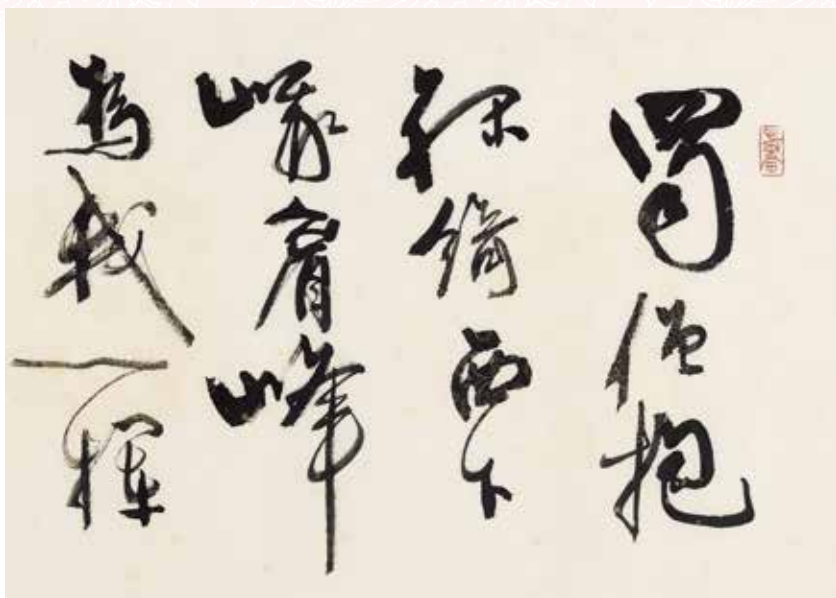 蜀僧抱
綠綺西下
峨眉峰
為我一揮